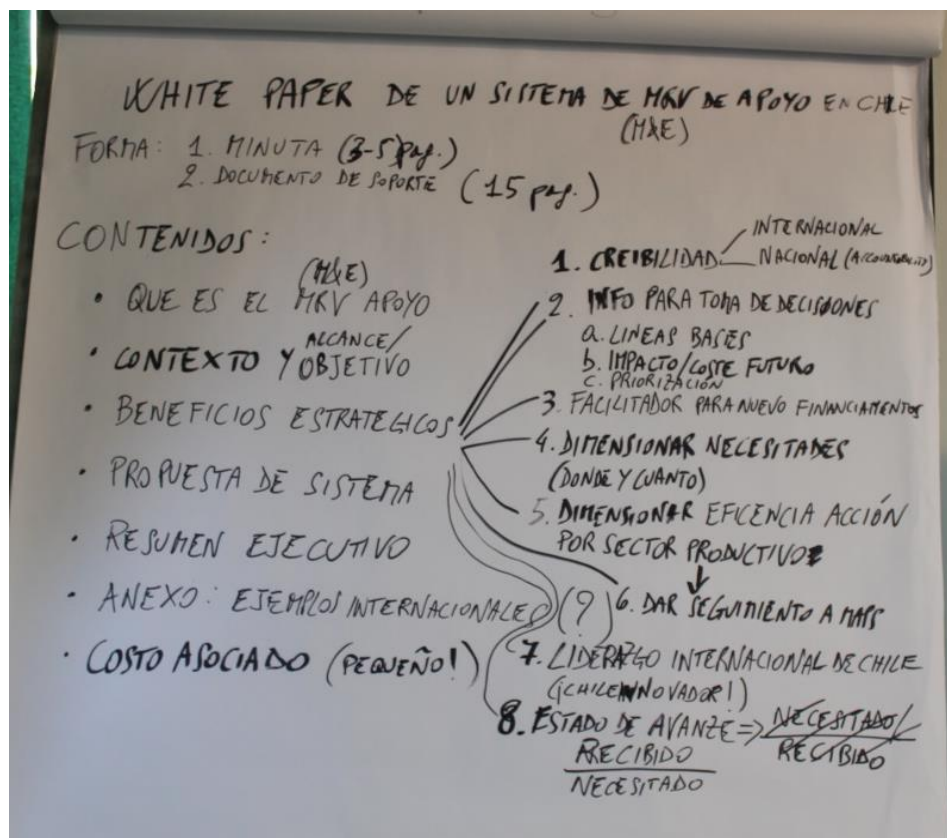 WHITE PAPER DE UN SISTEMA DE MRV DE APOYO EN CHILE
(M&E)
FORMA: 1. MINUTA (3-5) pag.)
2. DOCUMENTO DE SOPORTE (15 pag.)
CONTENIDOS:
(M&E)
• QUE ES EL MRV APOYO
• CONTEXTO Y ALCANCE/
OBJETIVO
• BENEFICIOS ESTRATEGICOS
• PROPUESTA DE SISTEMA
• RESUMEN EJECUTIVO
• ANEXO: EJEMPLOS INTERNACIONALES (?)
• COSTO ASOCIADO (PEQUEÑO!)
INTERNACIONAL
1. CREIBILIDAD NACIONAL (ACCOUNTABILITY)
2. INFO PARA TOMA DE DECISIONES
a. LINEAS BASES
b. IMPACTO/COSTE FUTURO
c. PRIORIZACIÓN
3. FACILITADOR PARA NUEVO FINANCIAMENTOS
4. DIMENSIONAR NECESITADES
(DONDE Y CUANTO)
5. DIMENSIONAR EFICENCIA ACCIÓN
POR SECTOR PRODUCTIVO
6. DAR SEGUIMIENTO A MAPS
7. LIDERAZGO INTERNACIONAL DE CHILE
(¡CHILE INNOVADOR!)
8. ESTADO DE AVANZE => NECESITADO/
RECIBIDO
RECIBIDO
NECESITADO